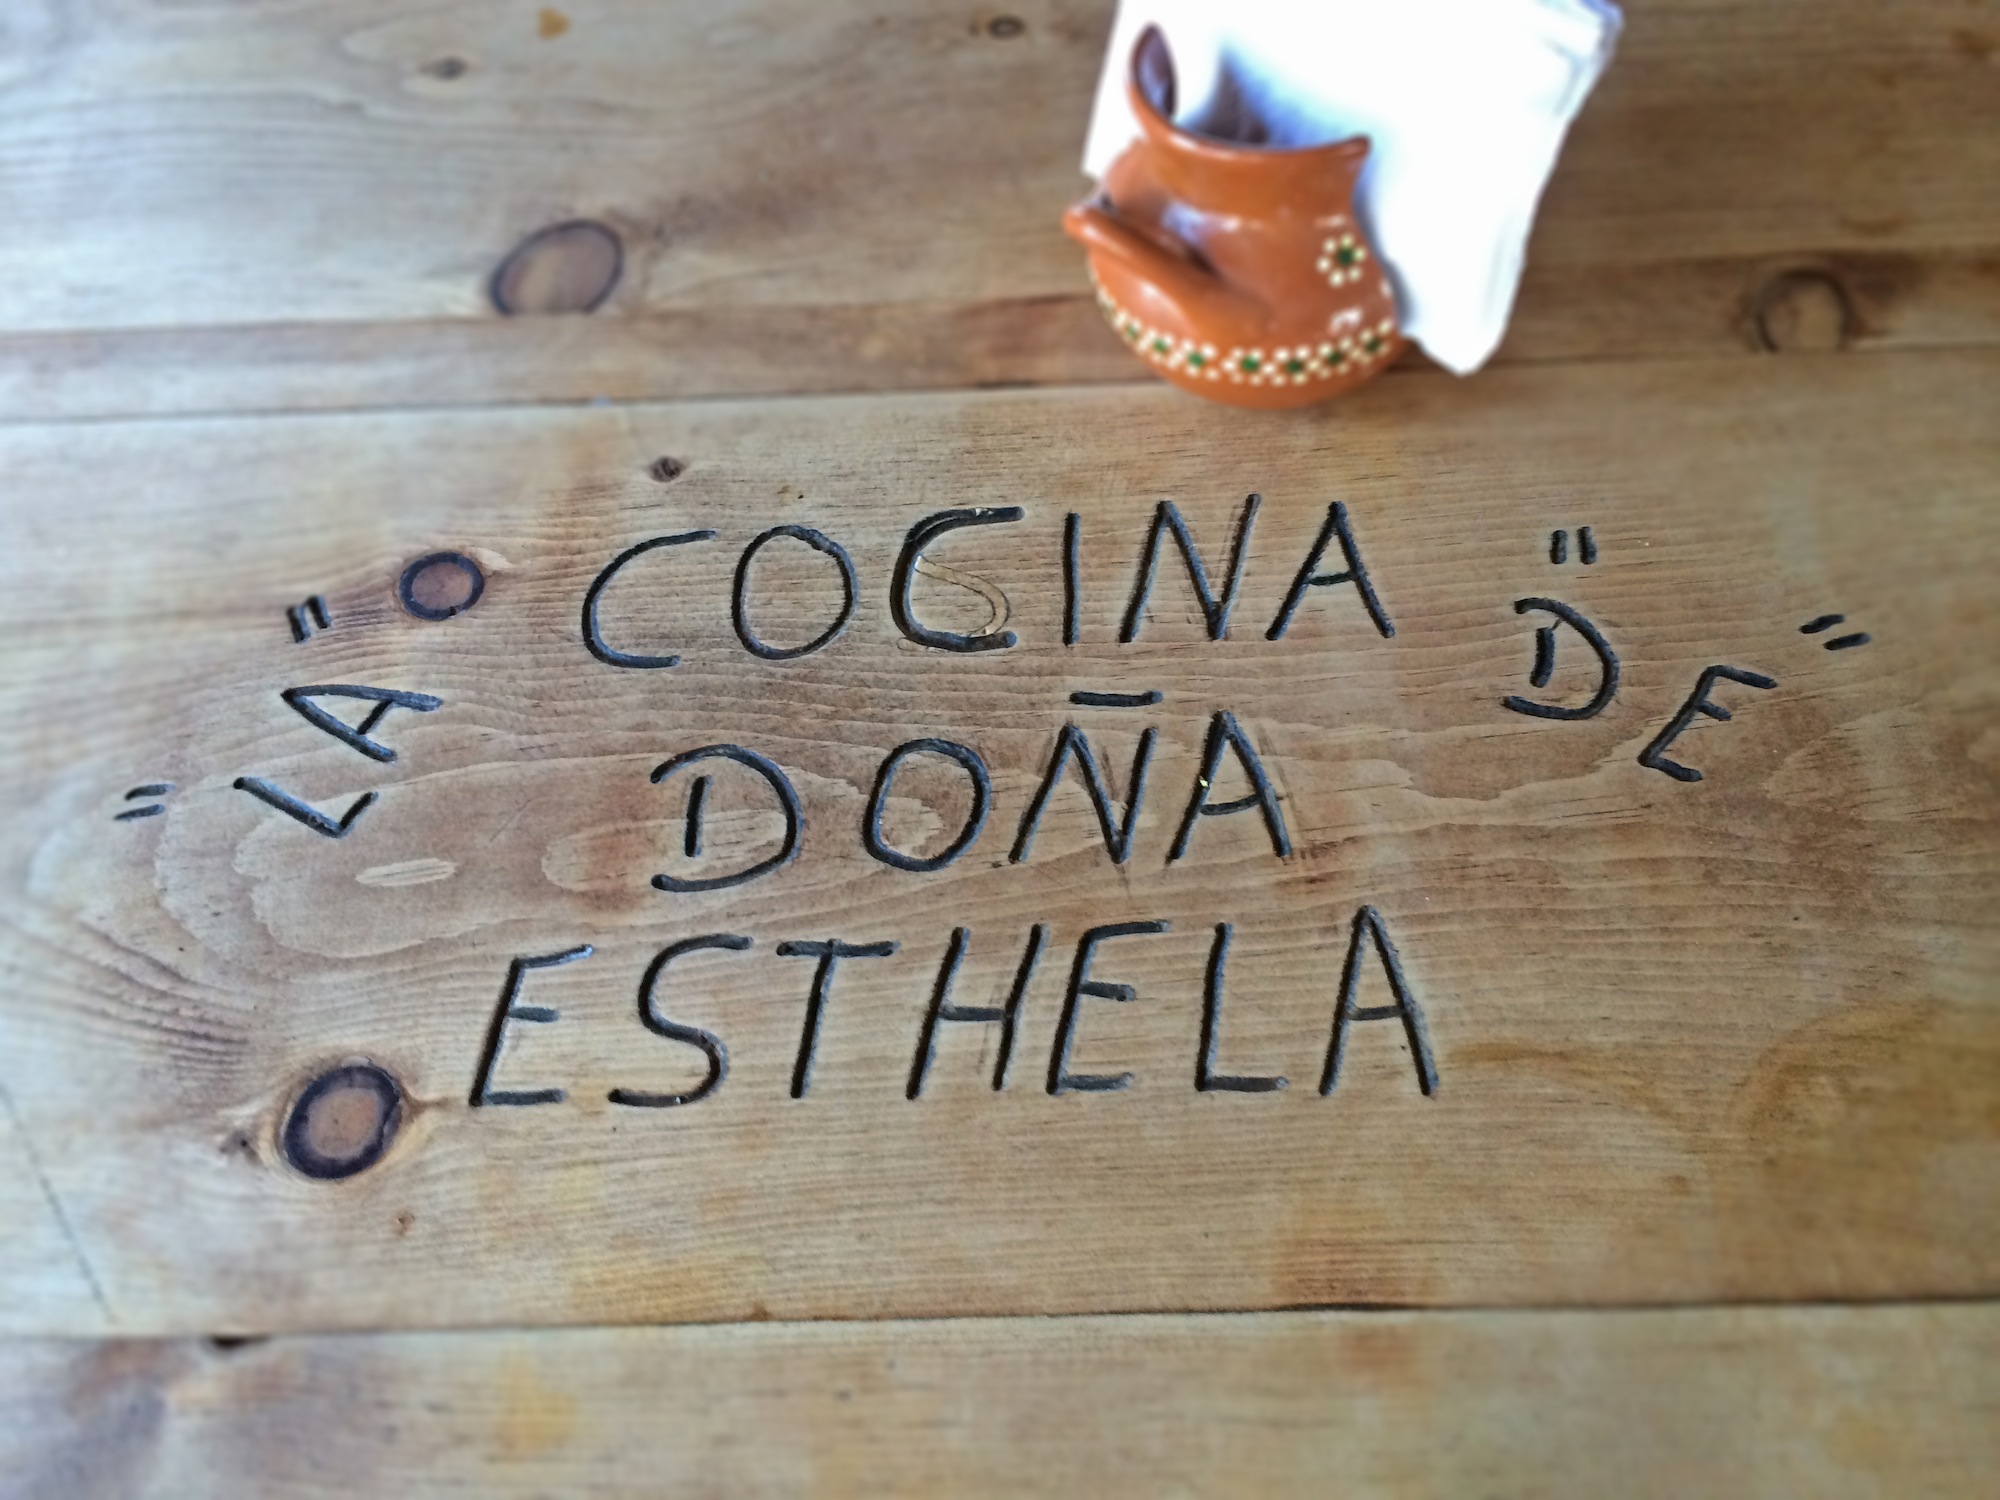 "LA" COCINA "DE"
DOÑA
ESTHELA